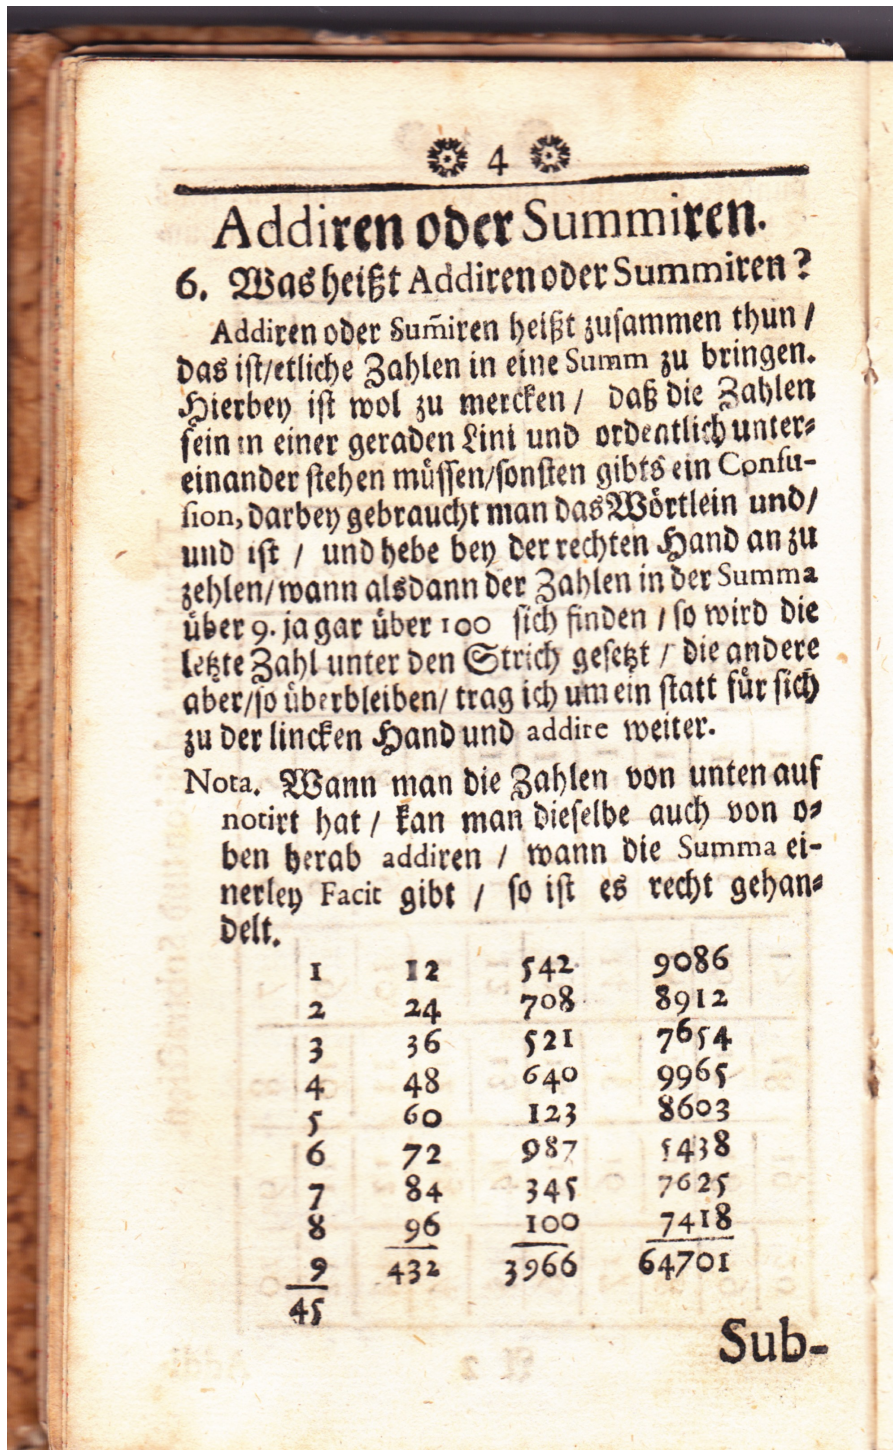 4
Addiren oder Summiren.
6. Was heißt Addiren oder Summiren?
Addiren oder Sum̃iren heißt zusammen thun /
das ist/etliche Zahlen in eine Summ zu bringen.
Hierbey ist wol zu mercken / daß die Zahlen
fein in einer geraden Lini und ordentlich unter-
einander stehen müssen/sonsten gibts ein Confu-
sion, darbey gebraucht man das Wörtlein und/
und ist / und hebe bey der rechten Hand an zu
zehlen/wann alsdann der Zahlen in der Summa
über 9. ja gar über 100 sich finden / so wird die
letzte Zahl unter den Strich gesetzt / die andere
aber/so überbleiben/ trag ich um ein statt für sich
zu der lincken Hand und addire weiter.
Nota. Wann man die Zahlen von unten auf
notirt hat / kan man dieselbe auch von o-
ben herab addiren / wann die Summa ei-
nerley Facit gibt / so ist es recht gehan-
delt.
1 12 542 9086
2 24 708 8912
3 36 521 7654
4 48 640 9965
5 60 123 8603
6 72 987 5438
7 84 345 7625
8 96 100 7418
9 432 3966 64701
45
Sub-